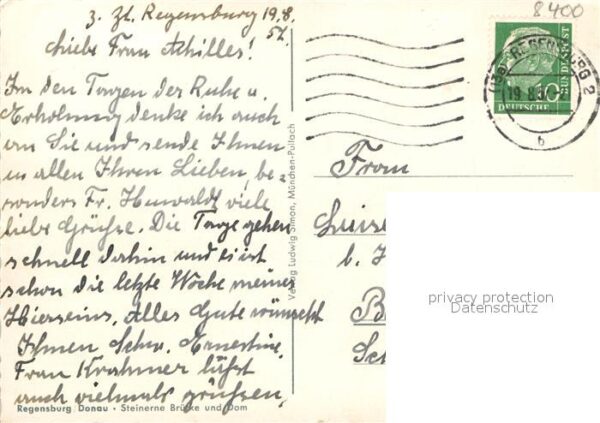 8400
z. Zt. Regensburg 19.8.
57.
Liebe Frau Achilles!
In den Tagen der Ruhe u.
Erholung denke ich auch
an Sie und sende Ihnen
u. allen Ihren Lieben, be-
sonders Fr. viele
liebe Grüsse. Die Tage gehen
schnell dahin und es ist
schon die letzte Woche meines
Hierseins. Alles Gute wünscht
Ihnen Schw. Ernestine.
Frau Krahmer lässt
auch vielmals grüssen.
Regensburg Donau - Steinerne Brücke und Dom
Verlag Ludwig Simon, München-Pullach
REGENSBURG 2
19.8.
b
10
DEUTSCHE
BUNDESPOST
Frau
Luise
b.
privacy protection
Datenschutz